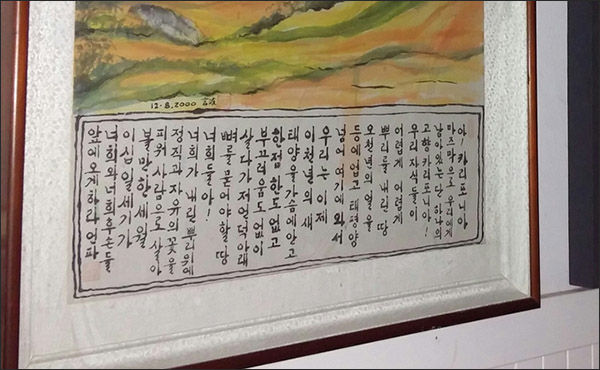 12.8.2000 言波
아! 카리포니아
마즈막으로 우리에게
남아있는 단 하나의
고향 카리포니아!
우리 자식들이
어렵게 어렵게
뿌리를 내린 땅
오천년의 얼을
등에 업고 태평양
넘어 여기에 와서
우리는 이제
이천년의 새
태양을 가슴에 안고
한점 한도 없고
부끄러움도 없이
살다가 저 언덕 아래
뼈를 묻어야 할 땅
너희들아!
너희가 내린 뿌리위에
정직과 자유의 꽃을
피워 사람으로 살아
볼만한 세월
이십일세기가
너희와 너희 후손들
앞에 오게 하라 언파